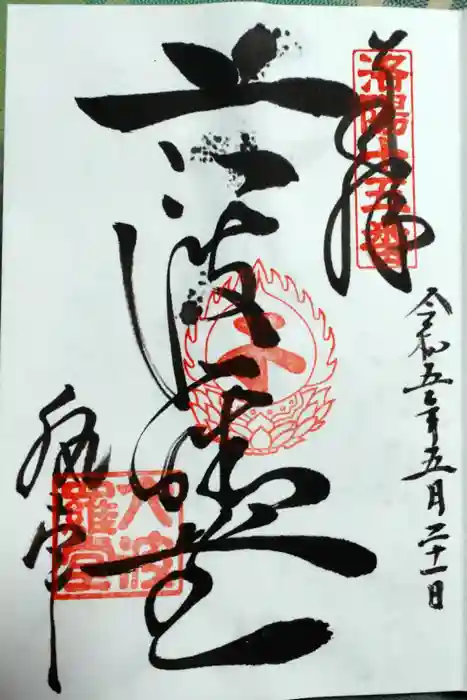 洛陽十五番
奉拝
令和五年五月二十一日
六波羅堂
六波
羅堂